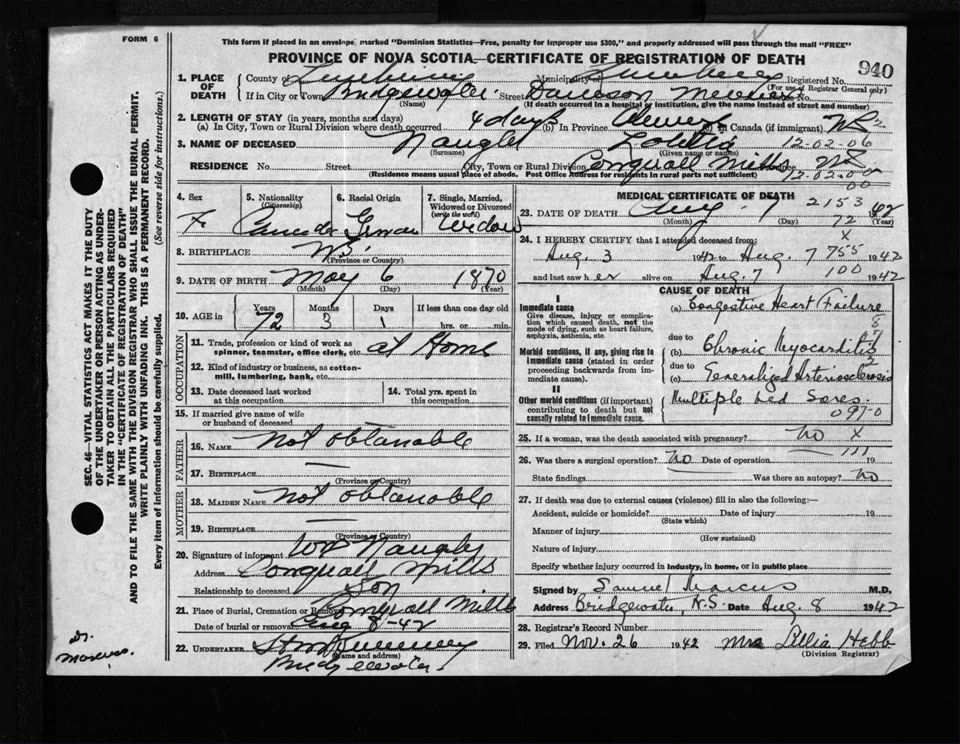 FORM 6
This form if placed in an envelope, marked "Dominion Statistics—Free, penalty for improper use $300," and properly addressed will pass through the mail "FREE"
PROVINCE OF NOVA SCOTIA—CERTIFICATE OF REGISTRATION OF DEATH
940
1. PLACE OF DEATH County of Lunenburg Municipality of Lunenburg Registered No.
(For use of Registrar General only)
If in City or Town Bridgewater Street House No.
(Name) (If death occurred in a hospital or institution, give the name instead of street and number)
2. LENGTH OF STAY (in years, months and days)
(a) In City, Town or Rural Division where death occurred 4 days (b) In Province Always (c) in Canada (if immigrant)
3. NAME OF DECEASED Naugler Lotitia 12-02-06
(Surname) (Given name or names)
RESIDENCE No. Street City, Town or Rural Division Conquall Mills NS
(Residence means usual place of abode. Post Office Address for residents in rural parts not sufficient) 12-02-00
00
4. Sex
F
5. Nationality
(Citizenship)
Canada
6. Racial Origin
German
7. Single, Married, Widowed or Divorced
(write the word)
Widow
8. BIRTHPLACE NS
(Province or Country)
9. DATE OF BIRTH May 6 1870
(Month) (Day) (Year)
10. AGE in Years Months Days If less than one day old
72 3 1 hrs. or min.
OCCUPATION
11. Trade, profession or kind of work as spinner, teamster, office clerk, etc. at Home
12. Kind of industry or business, as cotton-mill, lumbering, bank, etc.
13. Date deceased last worked at this occupation
14. Total yrs. spent in this occupation
15. If married give name of wife or husband of deceased
FATHER
16. NAME Not obtanable
17. BIRTHPLACE —
(Province or Country)
MOTHER
18. MAIDEN NAME Not obtanable
19. BIRTHPLACE —
(Province or Country)
20. Signature of informant Naugler
Address Conquall Mills
Relationship to deceased Son
21. Place of Burial, Cremation or Removal Conquall Mills
Date of burial or removal Aug 8-42
22. UNDERTAKER
(Name and address)
Bridgewater
MEDICAL CERTIFICATE OF DEATH
23. DATE OF DEATH Aug 7 2153 42
(Month) (Day) 72 (Year)
X
24. I HEREBY CERTIFY that I attended deceased from:
Aug. 3 1942 to Aug. 7 755 1942
and last saw her alive on Aug. 7 100 1942
CAUSE OF DEATH
I
Immediate cause
Give disease, injury or complication which caused death, not the mode of dying, such as heart failure, asphyxia, asthenia, etc.
(a) Congestive Heart Failure
due to
Morbid conditions, if any, giving rise to immediate cause (stated in order proceeding backwards from immediate cause).
(b) Chronic Myocarditis
due to
(c) Generalized Arteriosclerosis
II
Other morbid conditions (if important) contributing to death but not causally related to immediate cause.
Multiple bed sores.
097-0
25. If a woman, was the death associated with pregnancy? no X
111
26. Was there a surgical operation? no Date of operation 19
State findings Was there an autopsy? no
27. If death was due to external causes (violence) fill in also the following:—
Accident, suicide or homicide? Date of injury 19
(State which)
Manner of injury
(How sustained)
Nature of injury
Specify whether injury occurred in industry, in home, or in public place
Signed by Samuel Marcus M.D.
Address Bridgewater, N.S. Date Aug. 8 1942
28. Registrar's Record Number
29. Filed Nov. 26 1942 Mrs Lillia Hebb
(Division Registrar)
SEC. 46—VITAL STATISTICS ACT MAKES IT THE DUTY
OF THE UNDERTAKER OR PERSON ACTING AS UNDER-
TAKER TO OBTAIN ALL THE PARTICULARS REQUIRED
IN THE "CERTIFICATE OF REGISTRATION OF DEATH"
AND TO FILE THE SAME WITH THE DIVISION REGISTRAR WHO SHALL ISSUE THE BURIAL PERMIT.
WRITE PLAINLY WITH UNFADING INK. THIS IS A PERMANENT RECORD.
Every item of information should be carefully supplied. (See reverse side for instructions.)
Dr.
Marcus.